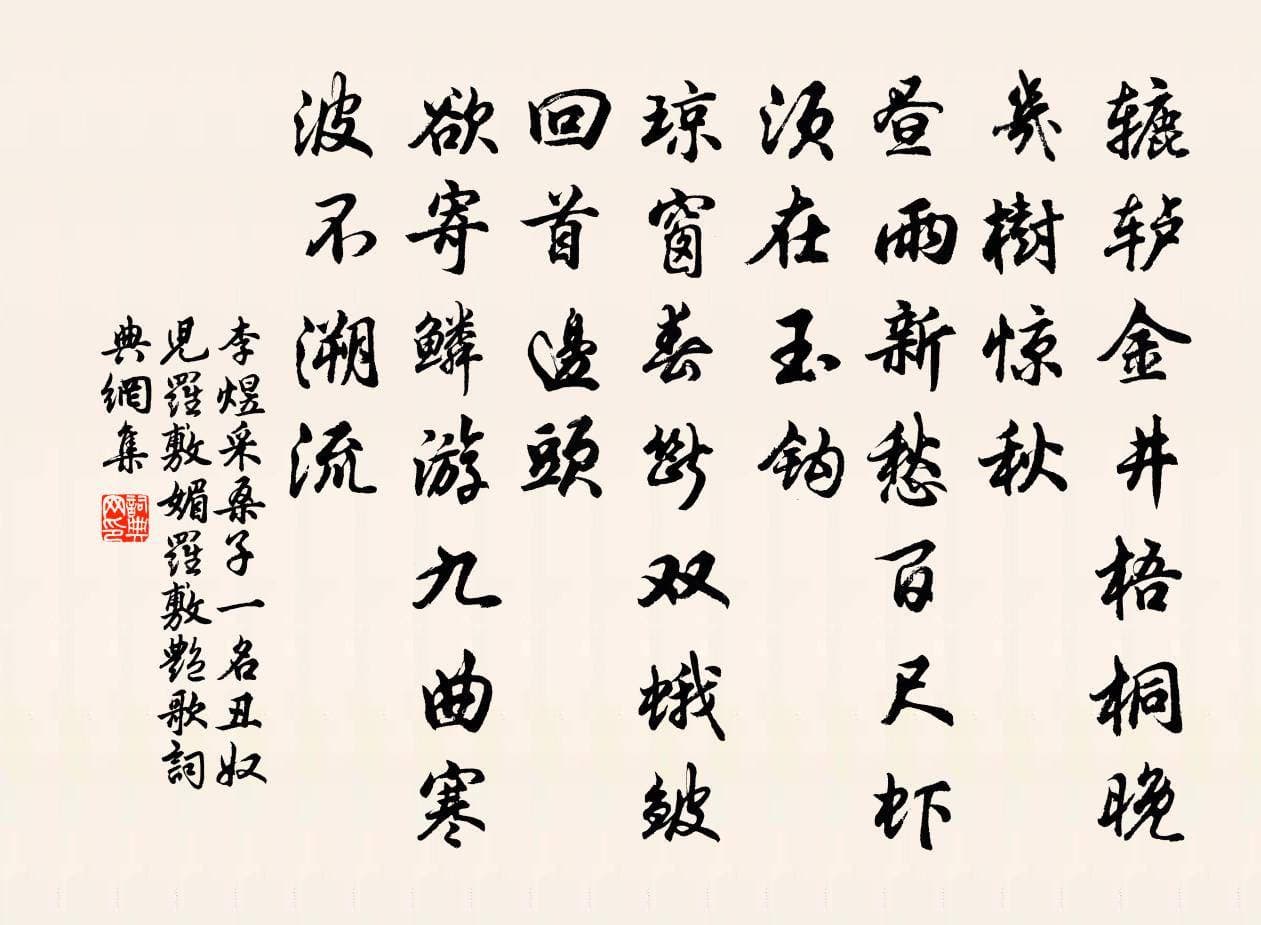 辘轳金井梧桐晚
幾樹惊秋
昼雨新愁百尺虾
须在玉钩
琼窗春断双蛾皱
回首邊頭
欲寄鳞游九曲寒
波不溯流
李煜采桑子一名丑奴
児羅敷媚羅敷艶歌詞
典網集
詞典
网印